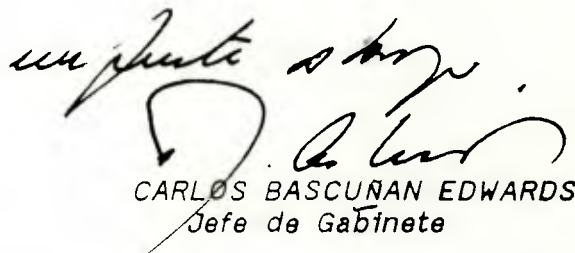 un fuerte abrazo.
CARLOS BASCUÑAN EDWARDS
Jefe de Gabinete